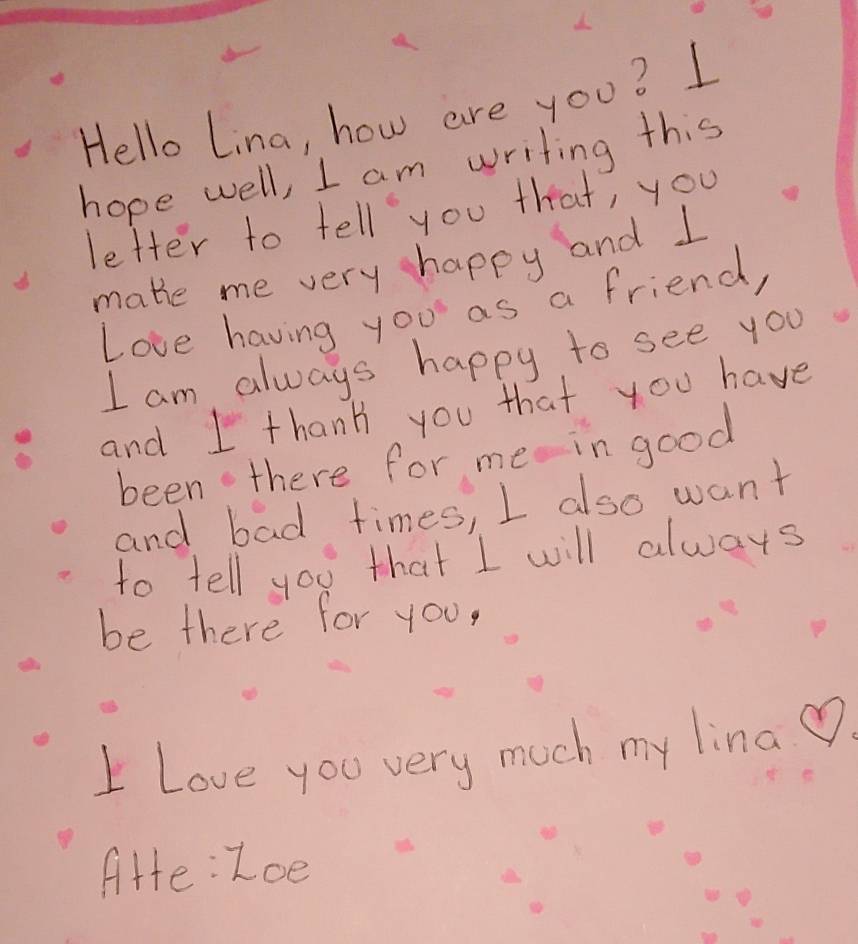 Hello Lina, how are you? I
hope well, I am writing this
letter to tell you that, you
make me very happy and I
Love having you as a friend,
I am always happy to see you
and I thank you that you have
been there for me in good
and bad times, I also want
to tell you that I will always
be there for you.
I Love you very much my lina ♡.
Atte: Zoe